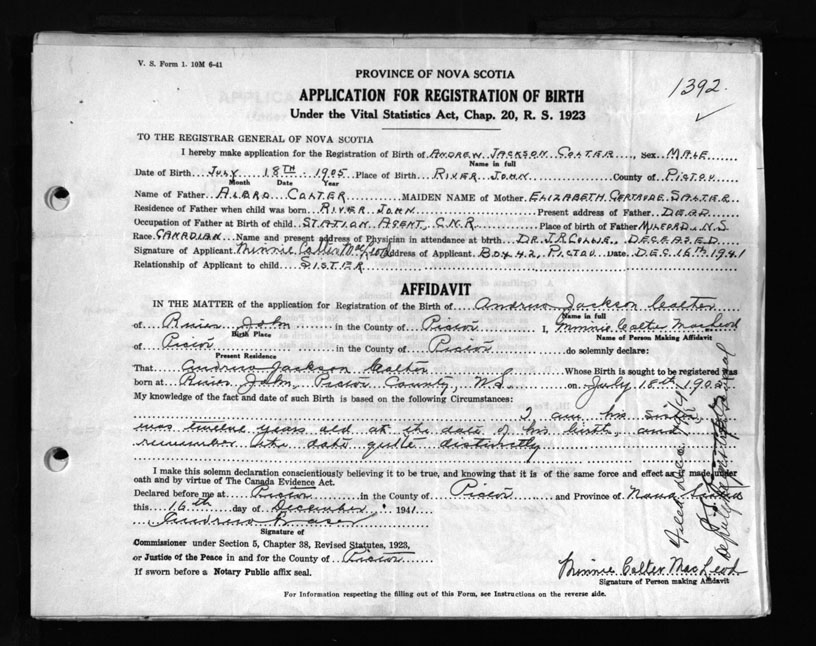 V. S. Form 1. 10M 6-41
PROVINCE OF NOVA SCOTIA
1392
APPLICATION FOR REGISTRATION OF BIRTH
Under the Vital Statistics Act, Chap. 20, R. S. 1923
TO THE REGISTRAR GENERAL OF NOVA SCOTIA
I hereby make application for the Registration of Birth of ANDREW JACKSON COLTER, Sex MALE
Name in full
Date of Birth JULY 18TH 1905 Place of Birth RIVER JOHN County of PICTOU
Month Date Year
Name of Father ALBRO COLTER MAIDEN NAME of Mother ELIZABETH GERTRUDE SALTER
Residence of Father when child was born RIVER JOHN Present address of Father DEAD
Occupation of Father at Birth of child STATION AGENT, C.N.R. Place of birth of Father MILFORD, N.S
Race CANADIAN Name and present address of Physician in attendance at birth DR. J.R. DECEASED
Signature of Applicant Minnie Colter MacLeod Address of Applicant BOX 42, PICTOU Date DEC. 15TH 1941
Relationship of Applicant to child SISTER
AFFIDAVIT
IN THE MATTER of the application for Registration of the Birth of Andrew Jackson Colter
Name in full
of River John in the County of Pictou I, Minnie Colter MacLeod
Birth Place Name of Person Making Affidavit
of Pictou in the County of Pictou do solemnly declare:
Present Residence
That Andrew Jackson Colter Whose Birth is sought to be registered was
born at River John, Pictou County, N.S. on July 18th 1905
My knowledge of the fact and date of such Birth is based on the following Circumstances:
I am his sister
was twelve years old at the date of his birth, and
remember the date quite distinctly
I make this solemn declaration conscientiously believing it to be true, and knowing that it is of the same force and effect as made under
oath and by virtue of The Canada Evidence Act.
Declared before me at Pictou in the County of Pictou and Province of Nova Scotia
this 16th day of December 1941
Signature of
Commissioner under Section 5, Chapter 38, Revised Statutes, 1923,
or Justice of the Peace in and for the County of Pictou
If sworn before a Notary Public affix seal.
Minnie Colter MacLeod
Signature of Person making Affidavit
For Information respecting the filling out of this Form, see Instructions on the reverse side.